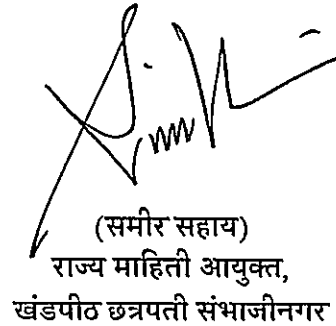 (समीर सहाय)
राज्य माहिती आयुक्त,
खंडपीठ छत्रपती संभाजीनगर